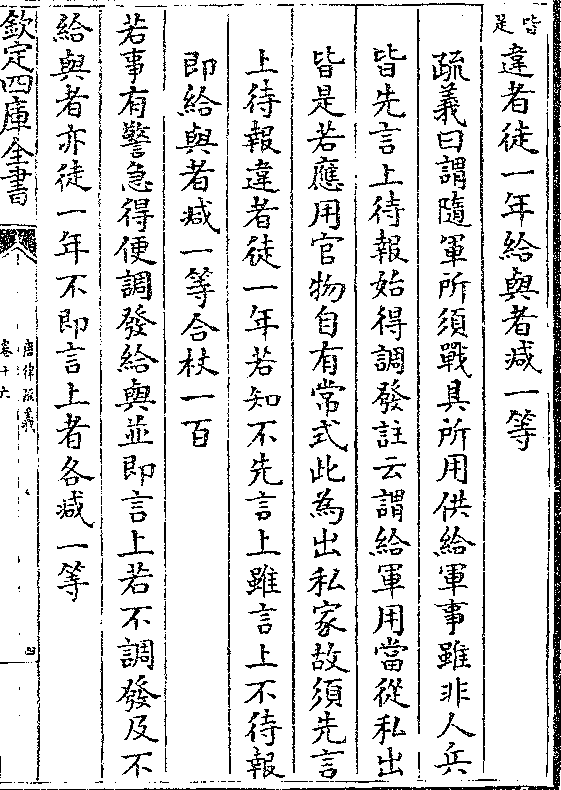 皆是
違者徒一年給與者减一等
疏義曰謂隨軍所須戰具所用供給軍事雖非人兵
皆先言上待報始得調發註云謂給軍用當從私出
皆是若應用官物自有常式此為出私家故須先言
上待報違者徒一年若知不先言上雖言上不待報
即給與者减一等合杖一百
若事有警急得便調發給與並即言上若不調發及不
給與者亦徒一年不即言上者各减一等
欽定四庫全書
唐律疏義
卷十六
四